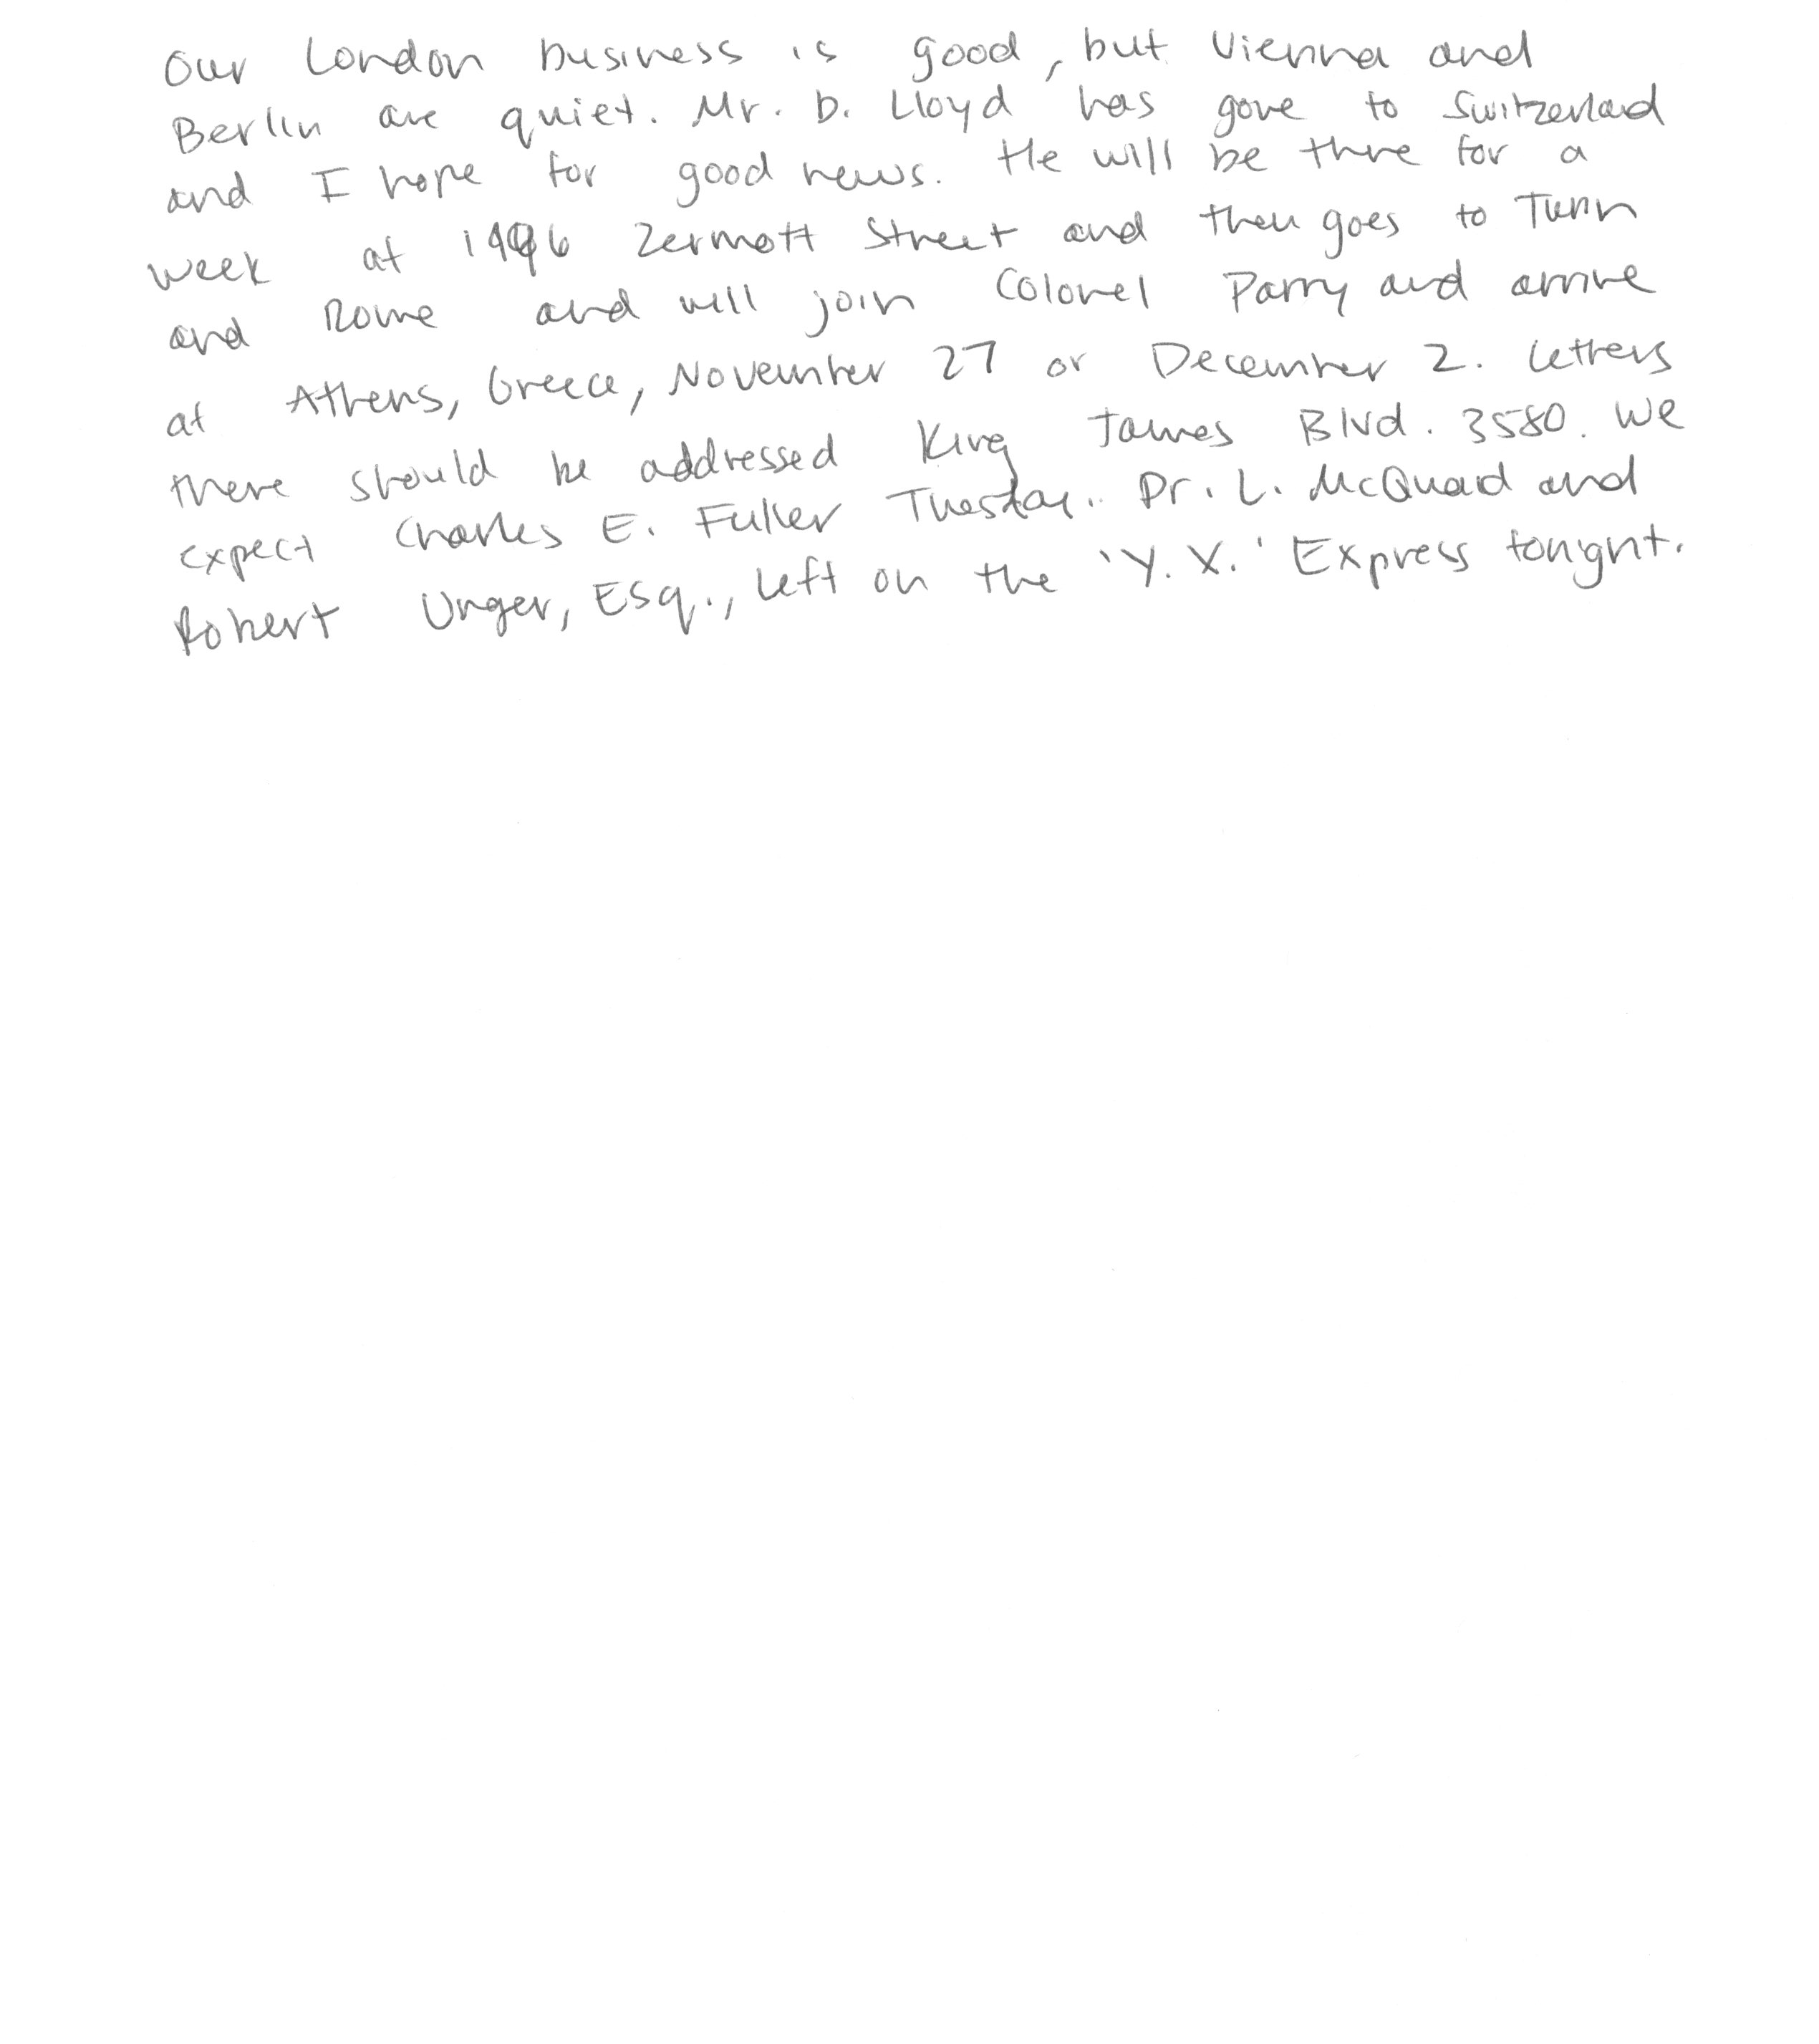 Our London business is good, but Vienna and
Berlin are quiet. Mr. D. Lloyd has gone to Switzerland
and I hope for good news. He will be there for a
week at 1496 Zermott Street and then goes to Turin
and Rome and will join Colonel Parry and arrive
at Athens, Greece, November 27 or December 2. Letters
there should be addressed King James Blvd. 3580. We
expect Charles E. Fuller Tuesday. Dr. L. McQuaid and
Robert Unger, Esq., left on the 'Y. X.' Express tonight.